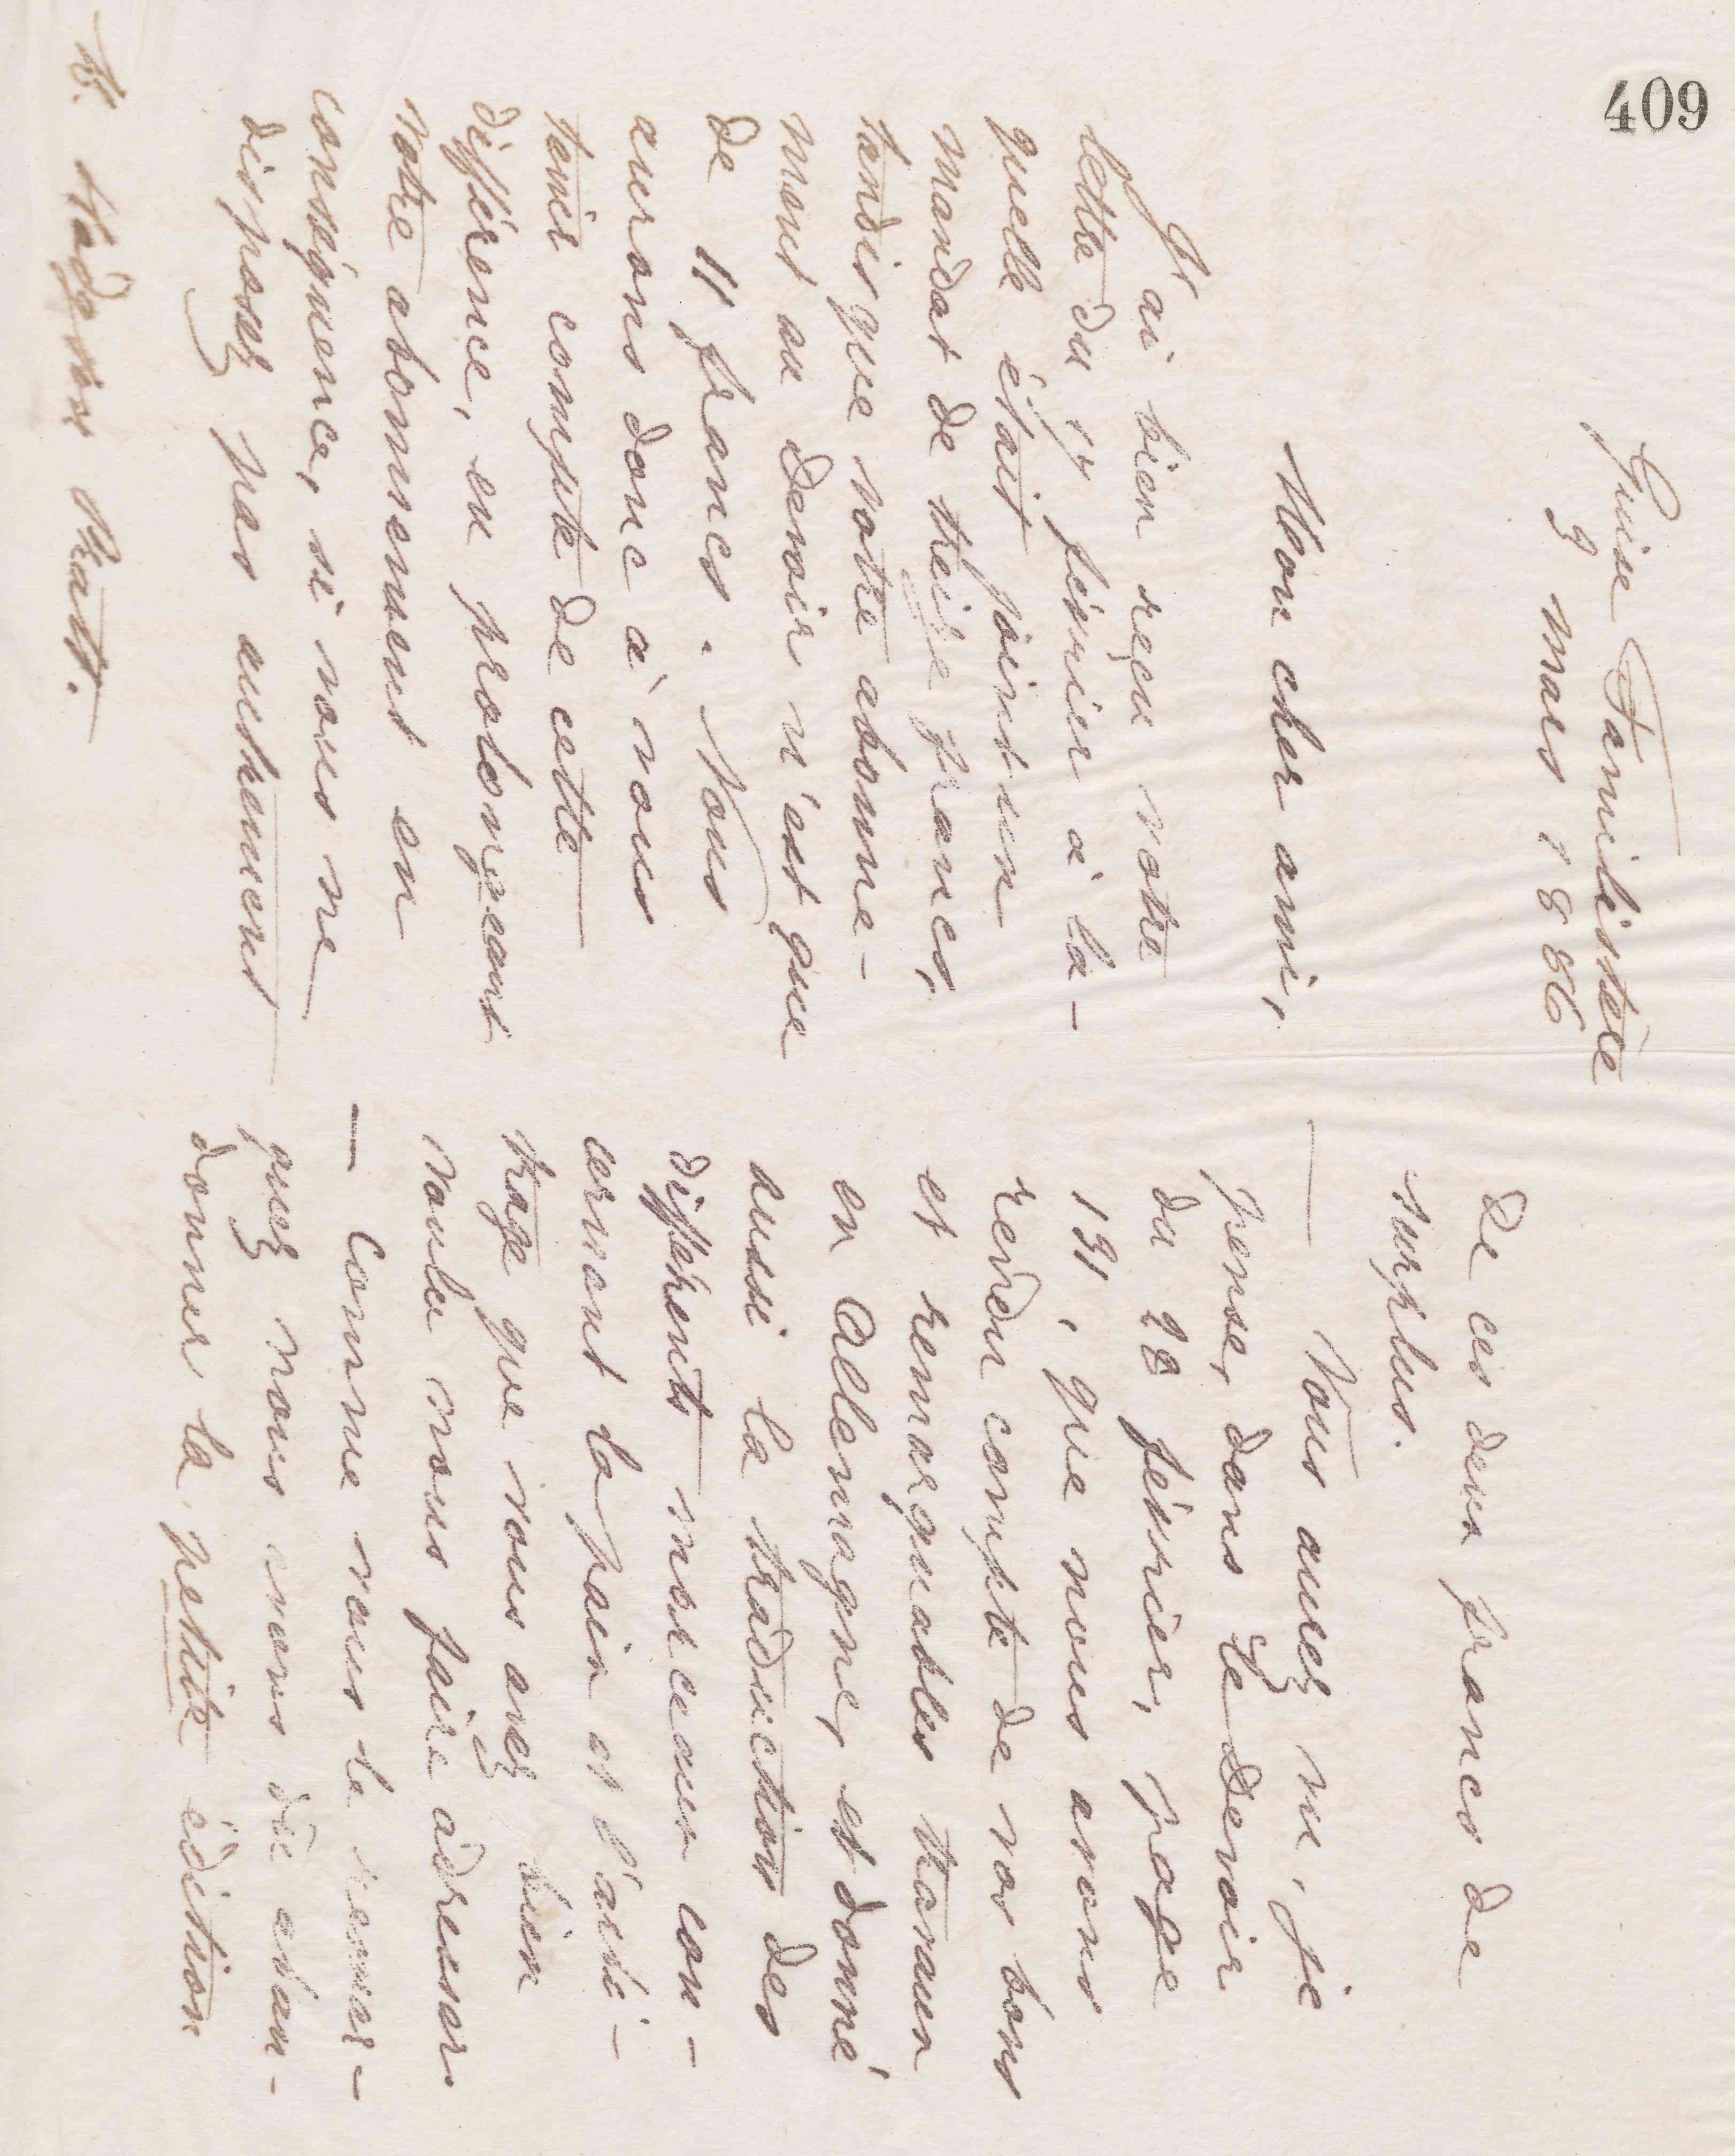 409
Guise Familistère
9 mars 1886
Mon cher ami,
J'ai bien reçu votre
lettre du 17 février à la-
quelle était joint un
mandat de treize francs,
tandis que votre abonne-
ment au Devoir n'est que
de 11 francs. Nous
aurons donc à vous
tenir compte de cette
différence, en prolongeant
votre abonnement en
conséquence, si vous ne
disposez pas autrement
M. Hodgson Pratt.
de ces deux francs de
surplus.
— Vous aurez vu, je
pense, dans Le Devoir
du 28 février, page
131, que nous avons
rendu compte de vos bons
et remarquables travaux
en Allemagne, et donné
aussi la traduction des
différents morceaux con-
cernant la paix et l'arbi-
trage que vous avez bien
voulu nous faire adresser.
— Comme vous le remar-
quez nous avons dû aban-
donner la petite édition